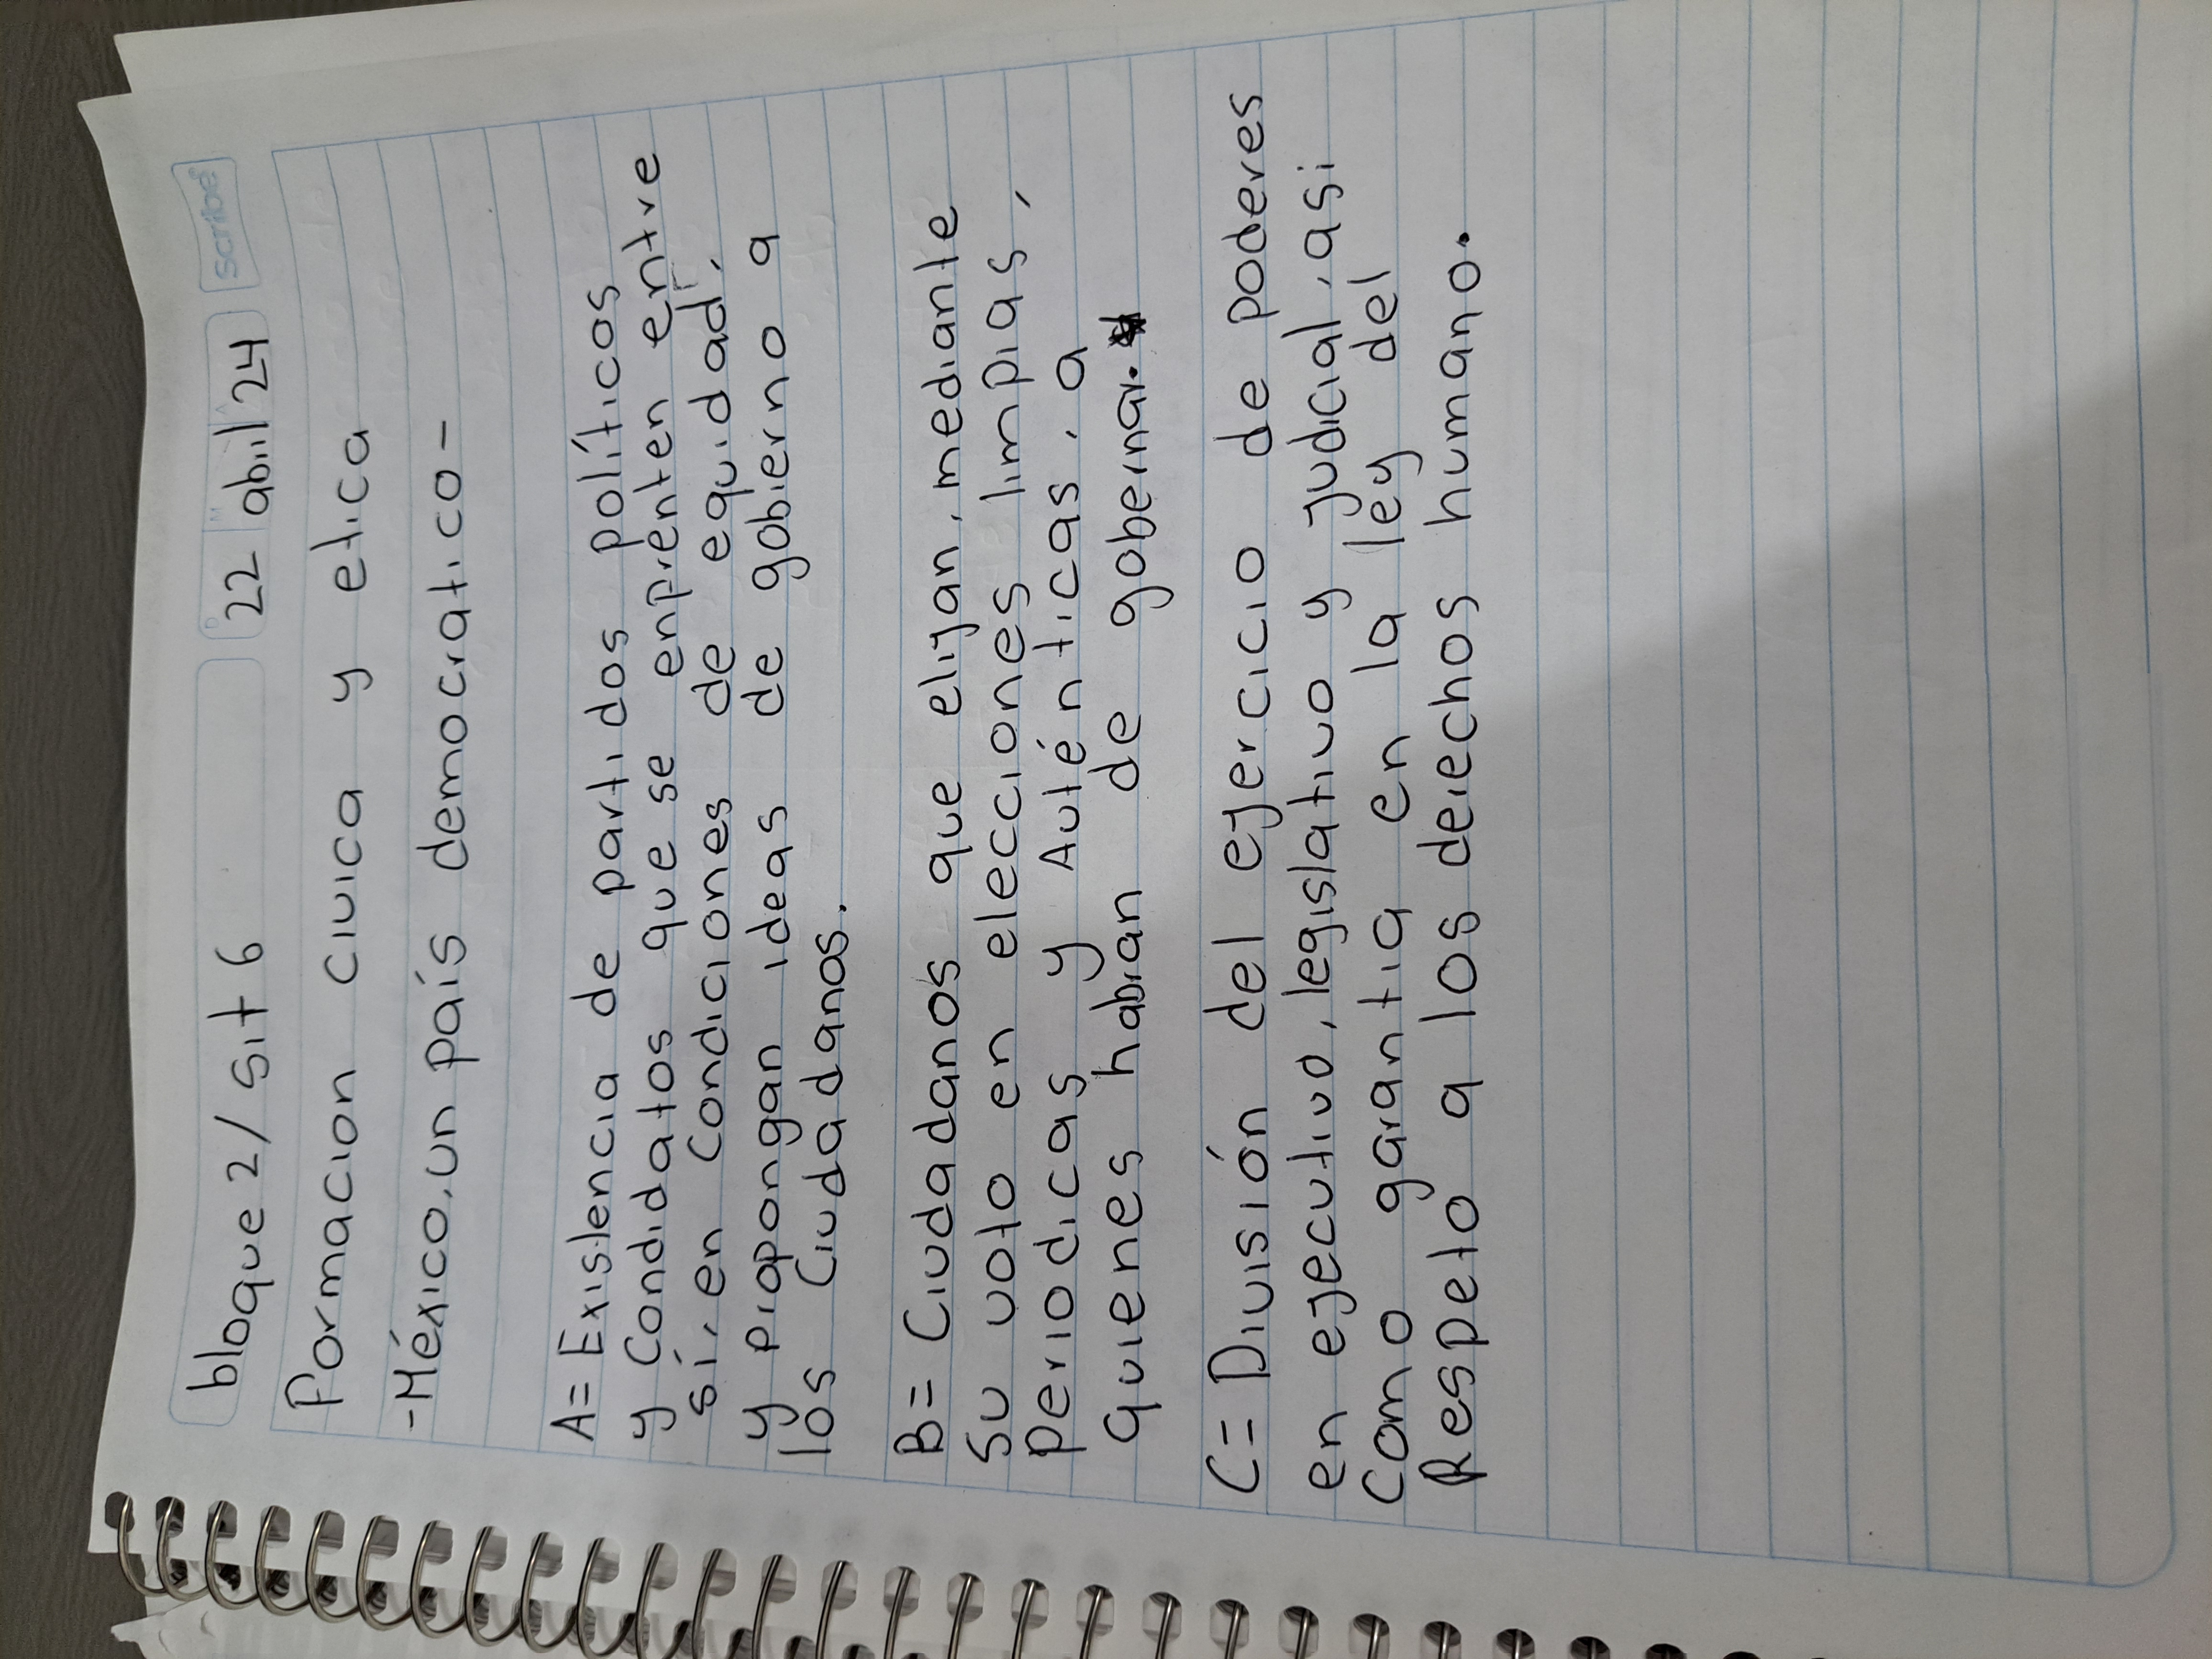 bloque 2/ sit 6
22 abril 24
scribe
Formacion civica y etica
-México, un país democratico-
A= Existencia de partidos políticos
y Condidatos que se enprenten entre
sí, en condiciones de equidad,
y propongan ideas de gobierno a
los Ciudadanos.
B= Ciudadanos que elijan, mediante
Su voto en elecciones limpias,
Periodicas y Auténticas, a
Quienes habran de gobernar.
C= División del ejercicio de poderes
en ejecutivo, legislativo y judicial, asi
Como garantia en la ley del
Respeto a los derechos humano.